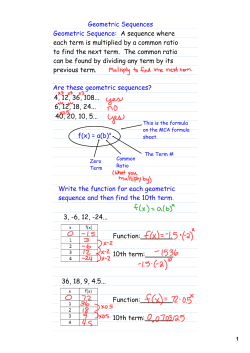 Geometric Sequences
Geometric Sequence: A sequence where
each term is multiplied by a common ratio
to find the next term. The common ratio
can be found by dividing any term by its
previous term. Multiply to find the next term
Are these geometric sequences?
x3 x3 x3
4, 12, 36, 108... yes
6, 12, 18, 24... no
40, 20, 10, 5... yes
This is the formula
on the MCA formula
sheet.
f(x) = a(b)ˣ
Zero
Term
Common
Ratio
The Term #
(what you
multiply by)
Write the function for each geometric
sequence and then find the 10th term.
f(x) = a(b)ˣ
3, -6, 12, -24...
x f(x)
0 -1.5
1 3
2 -6
3 12
4 -24
x-2
x-2
Function: f(x) = -1.5·(-2)ˣ
10th term: -1536
-1.5·(-2)¹⁰
36, 18, 9, 4.5...
x f(x)
0 72
1 36
2 18
3 9
4 4.5
x0.5
x0.5
Function: f(x) = 72·0.5ˣ
10th term: 0.0703125
1